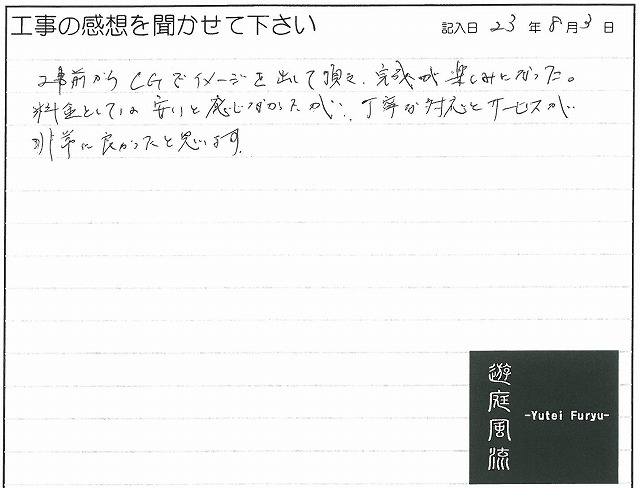 工事の感想を聞かせて下さい
記入日 23 年 8 月 3 日
工事前からCGでイメージを出して頂き、完成が楽しみになった。
料金としては安いと感じなかったが、丁寧な対応とサービスが
非常に良かったと思います。
遊庭風流
-Yutei Furyu-